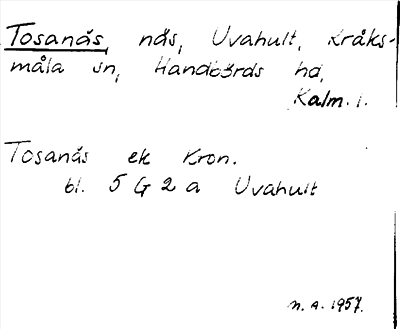 Tosanäs, näs, Uvahult, Kråks-
måla sn, Handbörds hd,
Kalm. l.
Tosanäs ek Kron.
bl. 5 G 2 a Uvahult
n. a. 1957.